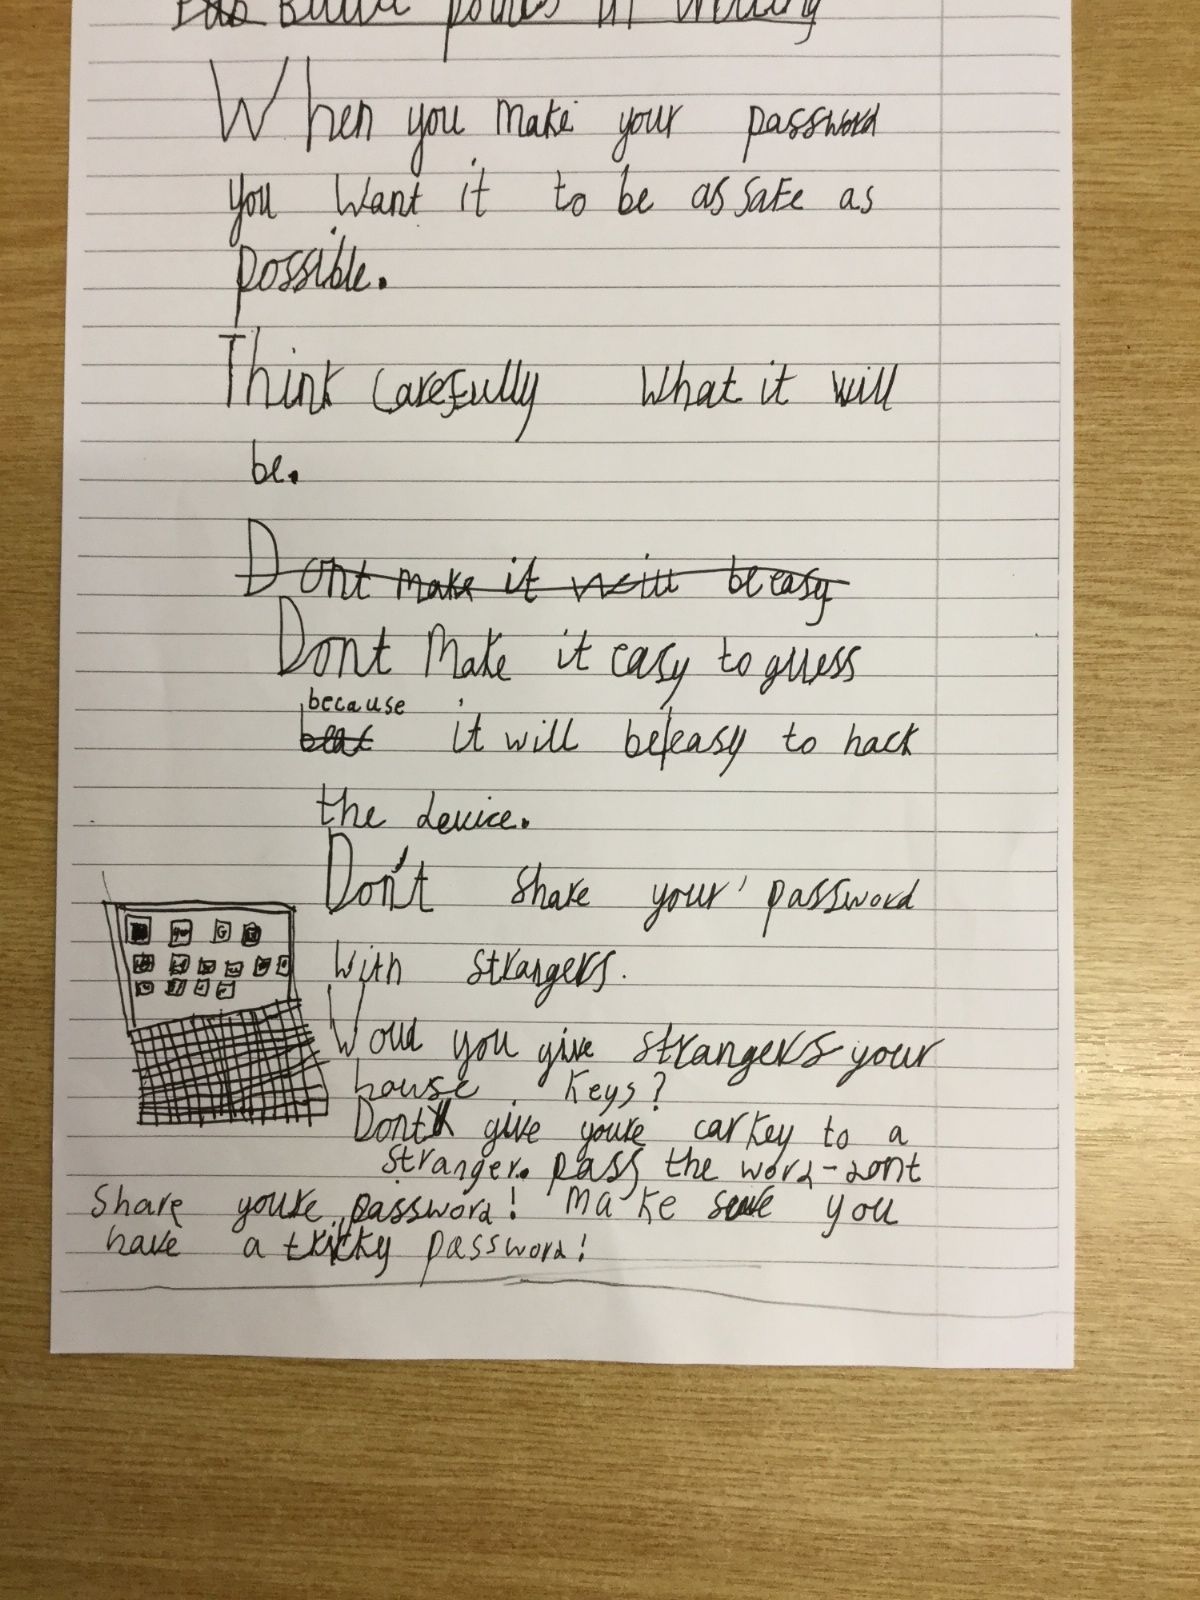 points in writing
When you make your password
you want it to be as safe as
possible.
Think carefully what it will
be.
Dont make it will be easy
Dont make it easy to guess
because
it will be/easy to hack
the device.
Don't share your password
with strangers.
Woud you give strangers your
house keys?
Dont give youre car key to a
stranger. pass the word-dont
share youre password! make sure you
have a tricky password!